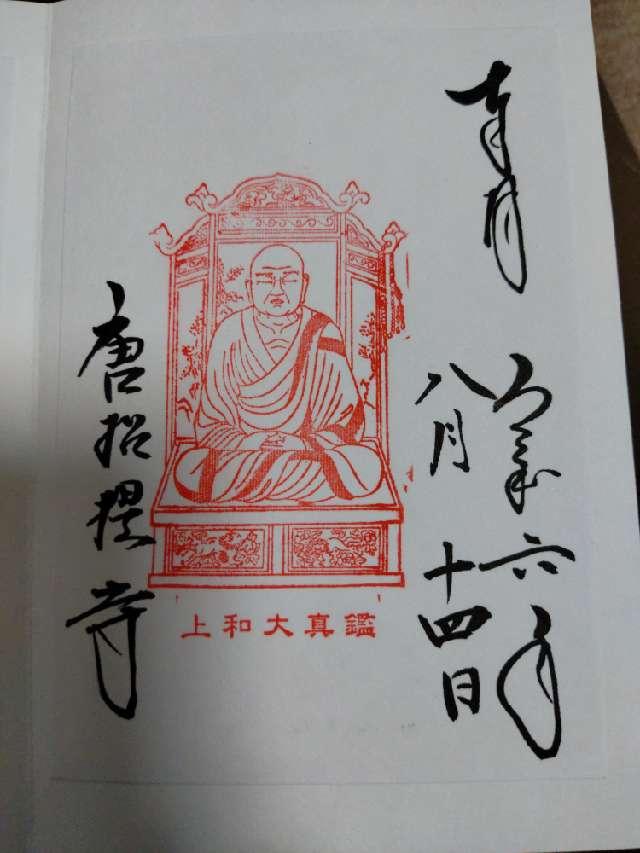 奉拝
令和六年
八月十四日
上和大真鑑
唐招提寺